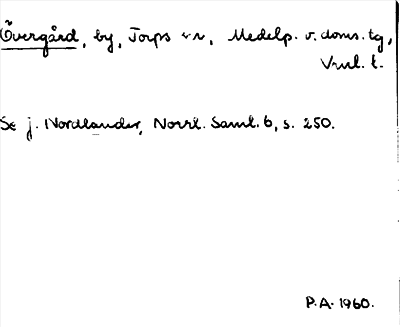 Övergård, by, Torps sn, Medelp. v. doms. tg,
Vnl. l.
Se J. Nordlander, Norrl. Saml. 6, s. 250.
P.A. 1960.